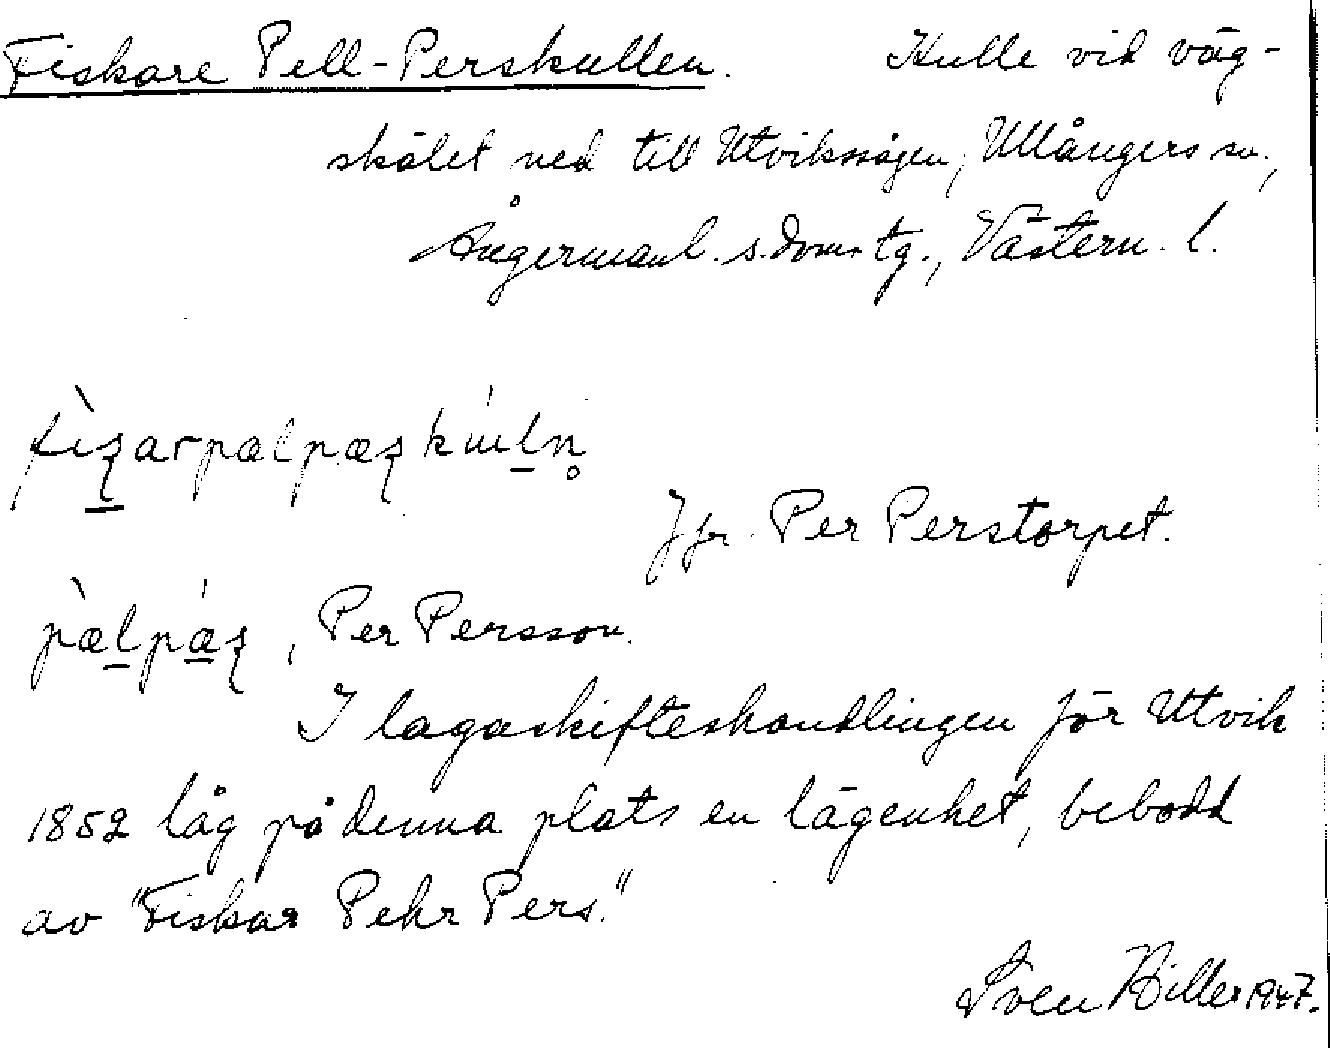 Fiskare Pell-Perskullen. Kulle vid väg-
skälet ned till Utvikssågen, Ullångers sn,
Ångermanl. s. doms. tg., Västern. l.
Jfr. Per Perstorpet.
, Per Persson.
I lagaskifteshandlingen för Utvik
1852 låg på denna plats en lägenhet, bebodd
av "Fiskar Pehr Pers."
Sven Hiller 1947.